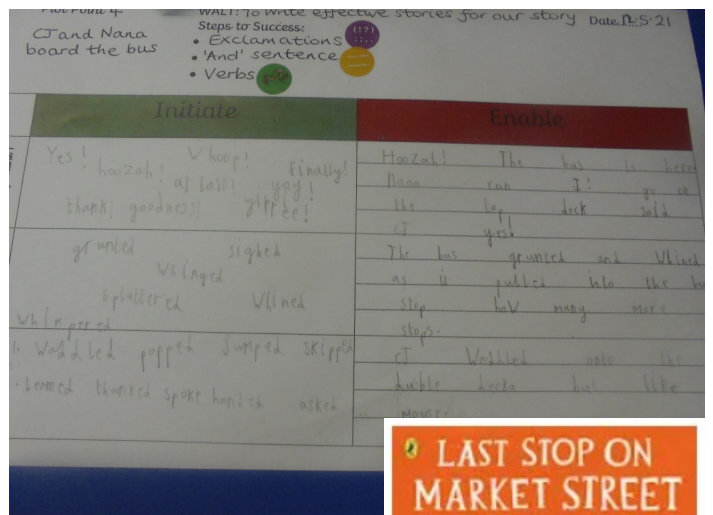 Plot Point 4
CJ and Nana
board the bus
WALT: To write effective stories for our story
Date 12.5.21
Steps to Success:
• Exclamations (!?)
• 'And' sentence
• Verbs
Initiate
Yes! Whoop! finally!
hoozah! at last! yay!
thank! goodness! yipplee!
grunted sighed
whinged
spluttered Whined
whimpered
1. Waddled popped Jumped skipped
thanked spoke handed asked
Enable
Hoozah! The bus is here
Nana can I! go on
the top deck said
CJ yes!
The bus grunted and Whined
as it pulled into the
stop how many more
stops.
CJ Waddled onto the
duible decke bus like
LAST STOP ON
MARKET STREET